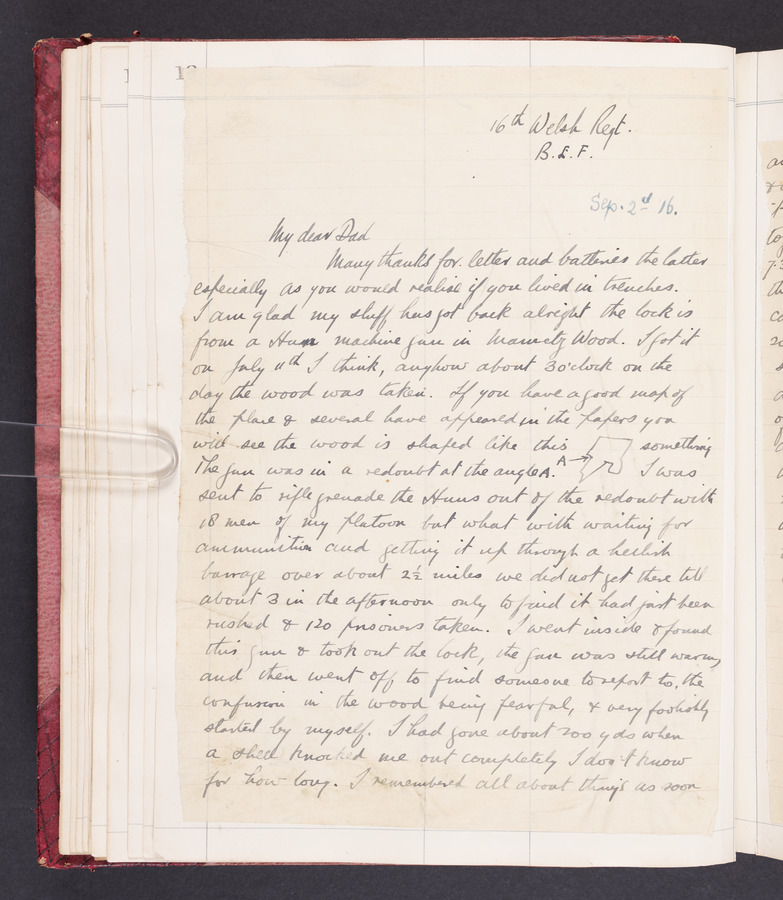 16th Welsh Regt.
B.E.F.
Sep. 2nd 16.
My dear Dad
Many thanks for letter and batteries the latter
especially as you would realise if you lived in trenches.
I am glad my stuff has got back alright the lock is
from a Hun machine gun in Mametz Wood. I got it
on July 11th I think, anyhow about 3 o'clock on the
day the wood was taken. If you have a good map of
the place & several have appeared in the papers you
will see the wood is shaped like this A something
The gun was in a redoubt at the angle A. I was
sent to rifle grenade the Huns out of the redoubt with
18 men of my platoon but what with waiting for
ammunition and getting it up through a hellish
barrage over about 2½ miles we did not get there till
about 3 in the afternoon only to find it had just been
rushed & 120 prisoners taken. I went inside & found
this gun & took out the lock, the gun was still warm,
and then went off to find someone to report to, the
confusion in the wood being fearful, & very foolishly
started by myself. I had gone about 200 yds when
a shell knocked me out completely I don't know
for how long. I remembered all about things as soon